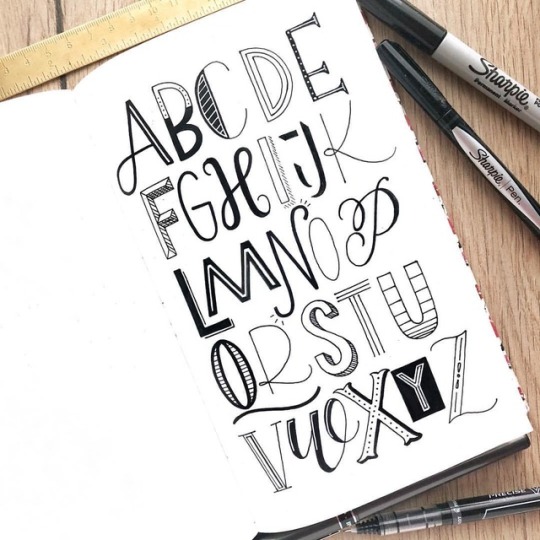 ABCDE
FGHIJK
LMNOP
QRSTU
VWXYZ
Sharpie
Sharpie Pen.
PRECISE